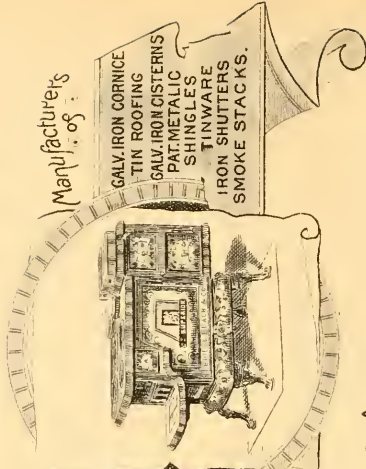 Manufacturers
of
GALV. IRON CORNICE
TIN ROOFING
GALV. IRON CISTERNS
PAT. METALIC
SHINGLES
TINWARE
IRON SHUTTERS
SMOKE STACKS.